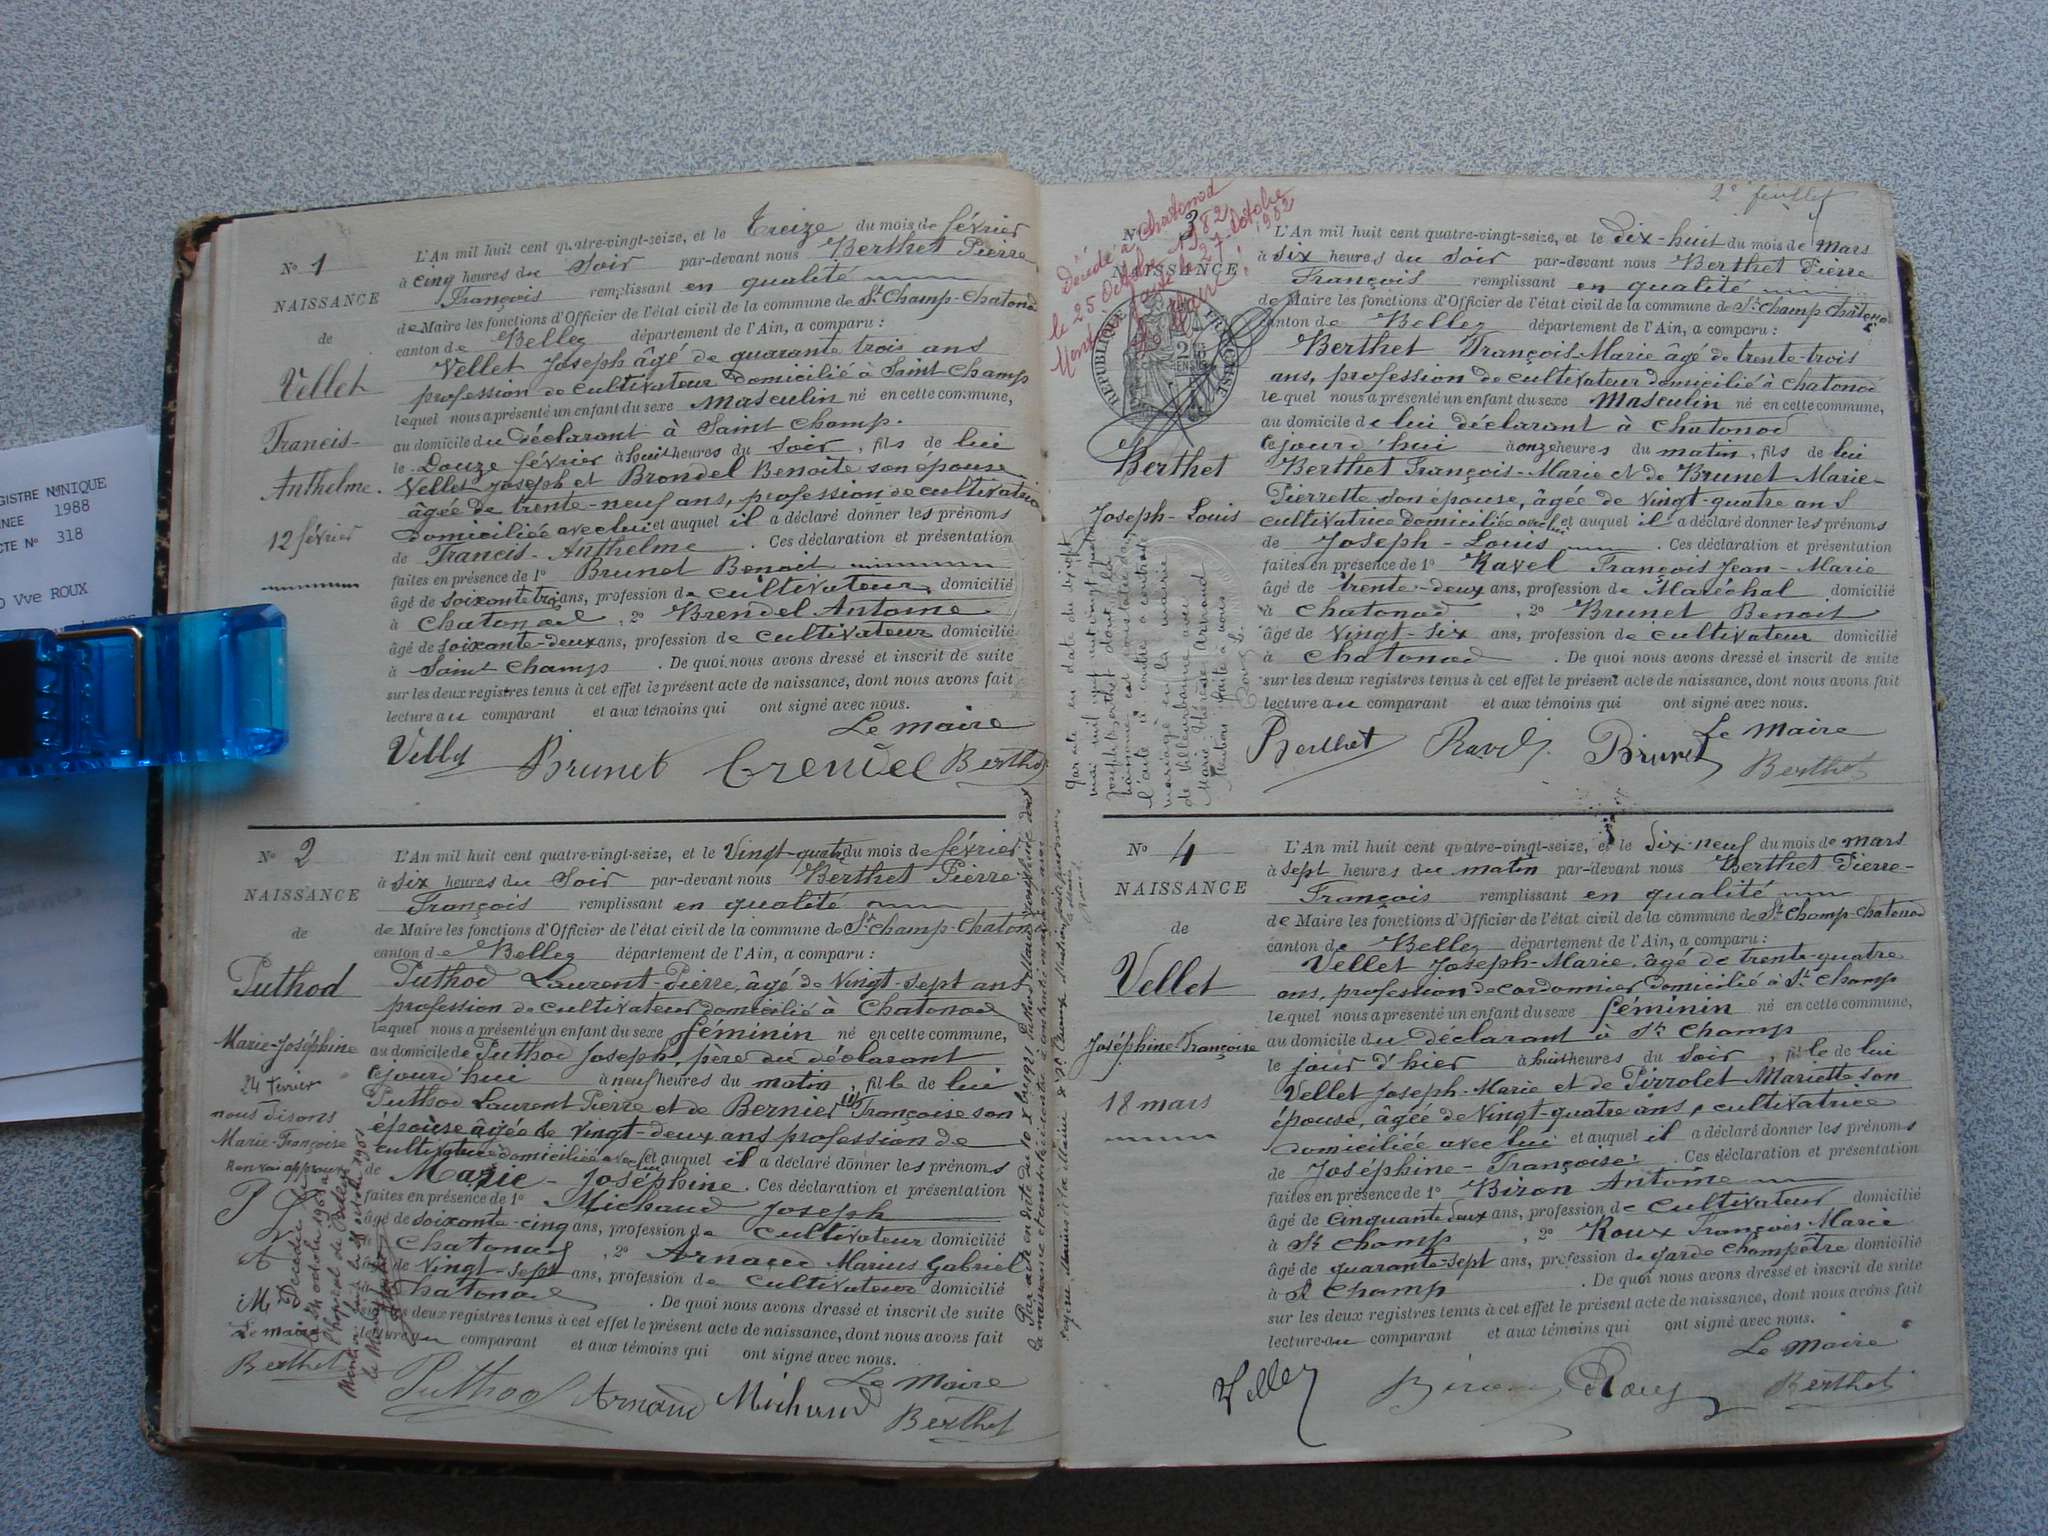 GISTRE UNIQUE
NEE 1988
CTE N° 318
Vve ROUX
N° 1
NAISSANCE
de
Vellet
Francis-
Anthelme.
12 février
L'An mil huit cent quatre-vingt-seize, et le Treize du mois de février
à cinq heures du Soir par-devant nous Berthet Pierre
François remplissant en qualité
de Maire les fonctions d'Officier de l'état civil de la commune de St Champ-Chatonod
canton de Belley département de l'Ain, a comparu :
Vellet Joseph âgé de quarante trois ans
profession de cultivateur domicilié à Saint Champ
lequel nous a présenté un enfant du sexe Masculin né en cette commune,
au domicile du déclarant à Saint Champ.
le Douze février à huit heures du Soir, fils de lui
Vellet Joseph et Brondel Benoite son épouse
âgée de trente-neuf ans, profession de cultivatrice
domiciliée avec lui et auquel il a déclaré donner les prénoms
de Francis-Anthelme . Ces déclaration et présentation
faites en présence de 1° Brunet Benoit
âgé de soixante trois ans, profession de cultivateur domicilié
à Chatonod , 2° Brendel Antoine
âgé de soixante-deux ans, profession de cultivateur domicilié
à Saint Champ . De quoi nous avons dressé et inscrit de suite
sur les deux registres tenus à cet effet le présent acte de naissance, dont nous avons fait
lecture au comparant et aux témoins qui ont signé avec nous.
Le maire
Vellet Brunet Brendel Berthet
N° 2
NAISSANCE
de
Puthod
Marie-Joséphine
24 février
nous disons
Marie-Françoise
Renvoi approuvé
P L
A
M
Le maire
Berthet
Décédée
L'An mil huit cent quatre-vingt-seize, et le Vingt-quatre du mois de février
à six heures du Soir par-devant nous Berthet Pierre
François remplissant en qualité
de Maire les fonctions d'Officier de l'état civil de la commune de St Champ-Chatonod
canton de Belley département de l'Ain, a comparu :
Puthod Laurent-Pierre, âgé de Vingt-sept ans
profession de cultivateur domicilié à Chatonod
lequel nous a présenté un enfant du sexe féminin né en cette commune,
au domicile de Puthod Joseph, père du déclarant
cejourd'hui à neuf heures du matin, fille de lui
Puthod Laurent Pierre et de Bernier Françoise son
épouse âgée de vingt-deux ans profession de
cultivatrice domiciliée avec lui et auquel il a déclaré donner les prénoms
de Marie-Joséphine. Ces déclaration et présentation
faites en présence de 1° Michaud Joseph
âgé de soixante-cinq ans, profession de cultivateur domicilié
à Chatonod , 2° Arnaud Marius Gabriel
âgé de vingt-sept ans, profession de cultivateur domicilié
à Chatonod . De quoi nous avons dressé et inscrit de suite
sur les deux registres tenus à cet effet le présent acte de naissance, dont nous avons fait
lecture au comparant et aux témoins qui ont signé avec nous.
Le Maire
Puthod Arnaud Michaud Berthet
2e feuillet
N° 3
NAISSANCE
Décédé à Chatonod
le 25 Octobre 1982
Mention faite le 27 Octobre 1982
Le Maire
RÉPUBLIQUE FRANÇAISE
Berthet
Joseph-Louis
L'An mil huit cent quatre-vingt-seize, et le dix-huit du mois de mars
à six heures du Soir par-devant nous Berthet Pierre
François remplissant en qualité
de Maire les fonctions d'Officier de l'état civil de la commune de St Champ Chatonod
canton de Belley département de l'Ain, a comparu :
Berthet François-Marie âgé de trente-trois
ans, profession de cultivateur domicilié à Chatonod
lequel nous a présenté un enfant du sexe Masculin né en cette commune,
au domicile de lui déclarant à Chatonod
cejourd'hui à onze heures du matin, fils de lui
Berthet François-Marie et de Brunet Marie-
Pierrette son épouse, âgée de vingt-quatre ans
cultivatrice domiciliée avec lui et auquel il a déclaré donner les prénoms
de Joseph-Louis . Ces déclaration et présentation
faites en présence de 1° Ravel François Jean-Marie
âgé de trente-deux ans, profession de Maréchal domicilié
à Chatonod , 2° Brunet Benoit
âgé de vingt-six ans, profession de cultivateur domicilié
à Chatonod . De quoi nous avons dressé et inscrit de suite
sur les deux registres tenus à cet effet le présent acte de naissance, dont nous avons fait
lecture au comparant et aux témoins qui ont signé avec nous.
Le Maire
Berthet Ravel Brunet Berthet
N° 4
NAISSANCE
de
Vellet
Joséphine-Françoise
18 mars
L'An mil huit cent quatre-vingt-seize, et le dix-neuf du mois de mars
à sept heures du matin par-devant nous Berthet Pierre-
François remplissant en qualité
de Maire les fonctions d'Officier de l'état civil de la commune de St Champ-Chatonod
canton de Belley département de l'Ain, a comparu :
Vellet Joseph-Marie âgé de trente-quatre
ans, profession de cordonnier domicilié à St Champ
lequel nous a présenté un enfant du sexe féminin né en cette commune,
au domicile du déclarant à St Champ
le jour d'hier à huit heures du Soir, fille de lui
Vellet Joseph-Marie et de Pirrolet Mariette son
épouse, âgée de vingt-quatre ans, cultivatrice
domiciliée avec lui et auquel il a déclaré donner les prénoms
de Joséphine-Françoise. Ces déclaration et présentation
faites en présence de 1° Biron Antoine
âgé de cinquante deux ans, profession de cultivateur domicilié
à St Champ , 2° Roux François Marie
âgé de quarante-sept ans, profession de garde champêtre domicilié
à St Champ . De quoi nous avons dressé et inscrit de suite
sur les deux registres tenus à cet effet le présent acte de naissance, dont nous avons fait
lecture au comparant et aux témoins qui ont signé avec nous.
Le Maire
Vellet Biron Roux Berthet